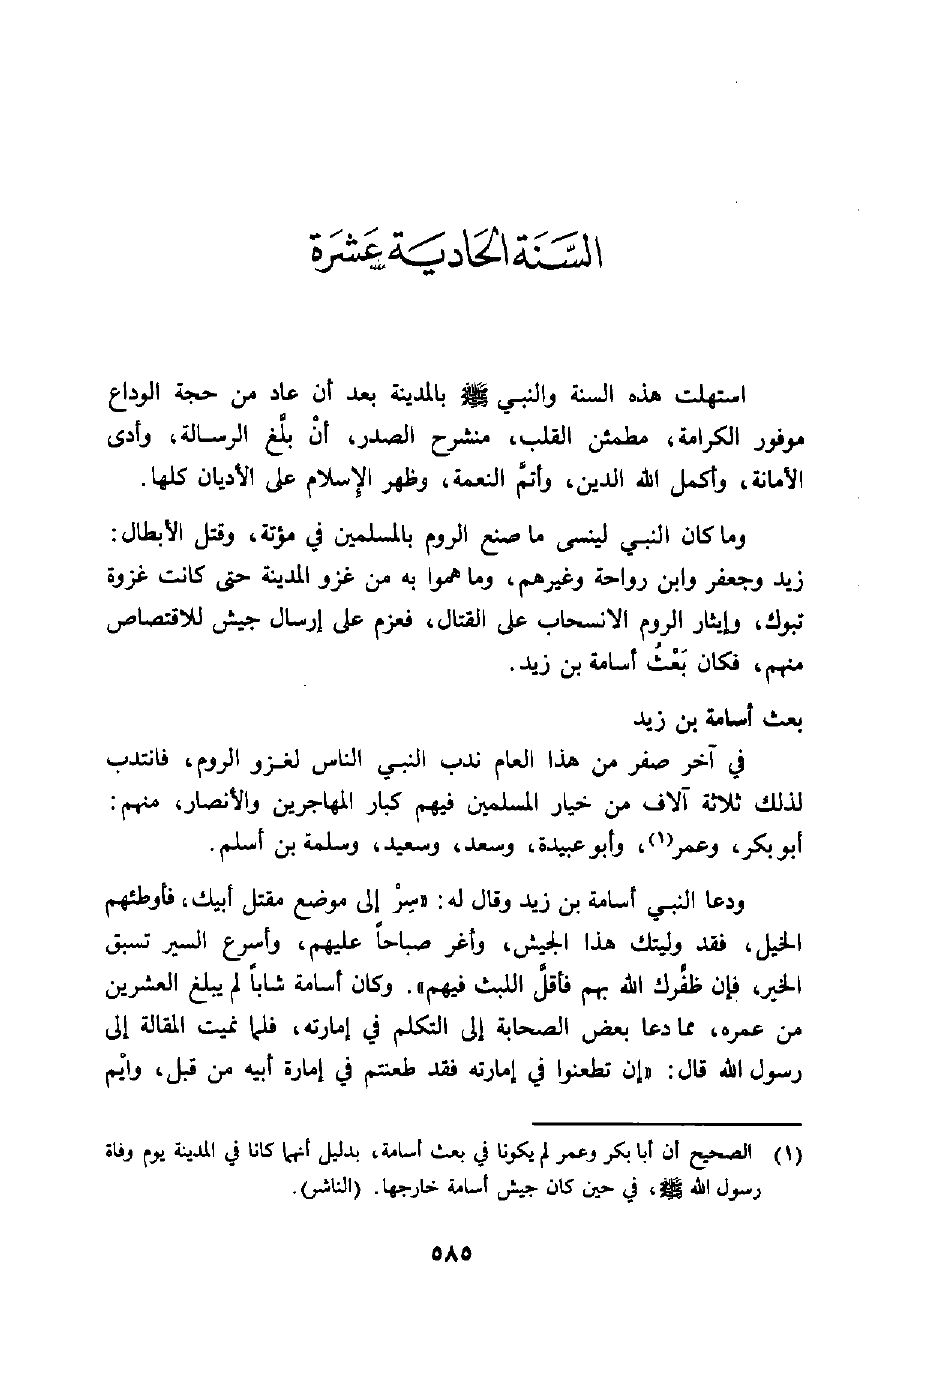 السَّنَة الحَادِيَة عَشَرَة
استهلت هذه السنة والنبي ﷺ بالمدينة بعد أن عاد من حجة الوداع
موفور الكرامة، مطمئن القلب، منشرح الصدر، أنْ بلَّغ الرسالة، وأدى
الأمانة، وأكمل الله الدين، وأتمَّ النعمة، وظهر الإسلام على الأديان كلها.
وما كان النبي لينسى ما صنع الروم بالمسلمين في مؤتة، وقتل الأبطال:
زيد وجعفر وابن رواحة وغيرهم، وما هموا به من غزو المدينة حتى كانت غزوة
تبوك، وإيثار الروم الانسحاب على القتال، فعزم على إرسال جيش للاقتصاص
منهم، فكان بَعْثُ أسامة بن زيد.
بعث أسامة بن زيد
في آخر صفر من هذا العام ندب النبي الناس لغزو الروم، فانتدب
لذلك ثلاثة آلاف من خيار المسلمين فيهم كبار المهاجرين والأنصار، منهم:
أبو بكر، وعمر(١)، وأبو عبيدة، وسعد، وسعيد، وسلمة بن أسلم.
ودعا النبي أسامة بن زيد وقال له: «سِرْ إلى موضع مقتل أبيك، فأوطئهم
الخيل، فقد وليتك هذا الجيش، وأغر صباحاً عليهم، وأسرع السير تسبق
الخبر، فإن ظفَّرك الله بهم فأقلَّ اللبث فيهم». وكان أسامة شاباً لم يبلغ العشرين
من عمره، مما دعا بعض الصحابة إلى التكلم في إمارته، فلما نميت المقالة إلى
رسول الله قال: «إن تطعنوا في إمارته فقد طعنتم في إمارة أبيه من قبل، وايْم
(١) الصحيح أن أبا بكر وعمر لم يكونا في بعث أسامة، بدليل أنهما كانا في المدينة يوم وفاة
رسول الله ﷺ، في حين كان جيش أسامة خارجها. (الناشر).
٥٨٥